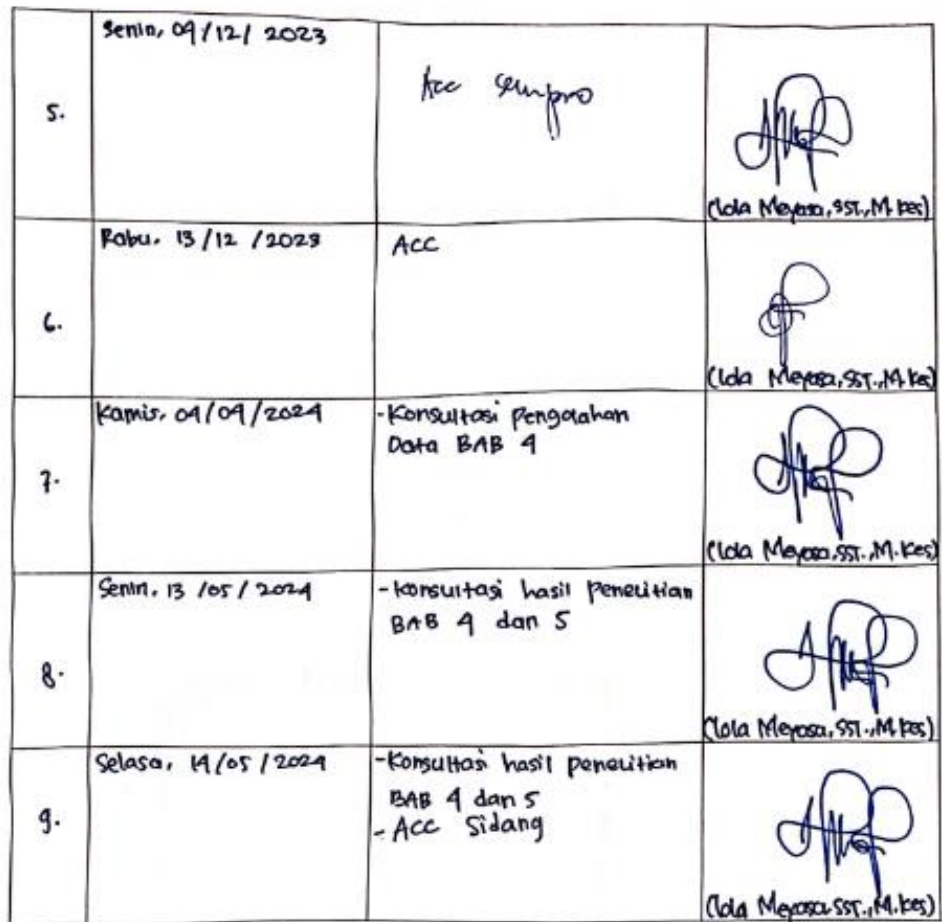 5.
Senin, 04/12/2023
Acc sempro
(Lola Meyasa, SST., M.Kes)
6.
Rabu, 13/12/2023
ACC
(Lola Meyasa, SST., M.Kes)
7.
Kamis, 04/04/2024
-Konsultasi Pengolahan
Data BAB 4
(Lola Meyasa, SST., M.Kes)
8.
Senin, 13/05/2024
-Konsultasi hasil Penelitian
BAB 4 dan 5
(Lola Meyasa, SST., M.Kes)
9.
Selasa, 14/05/2024
-Konsultasi hasil penelitian
BAB 4 dan 5
- ACC Sidang
(Lola Meyasa, SST., M.Kes)